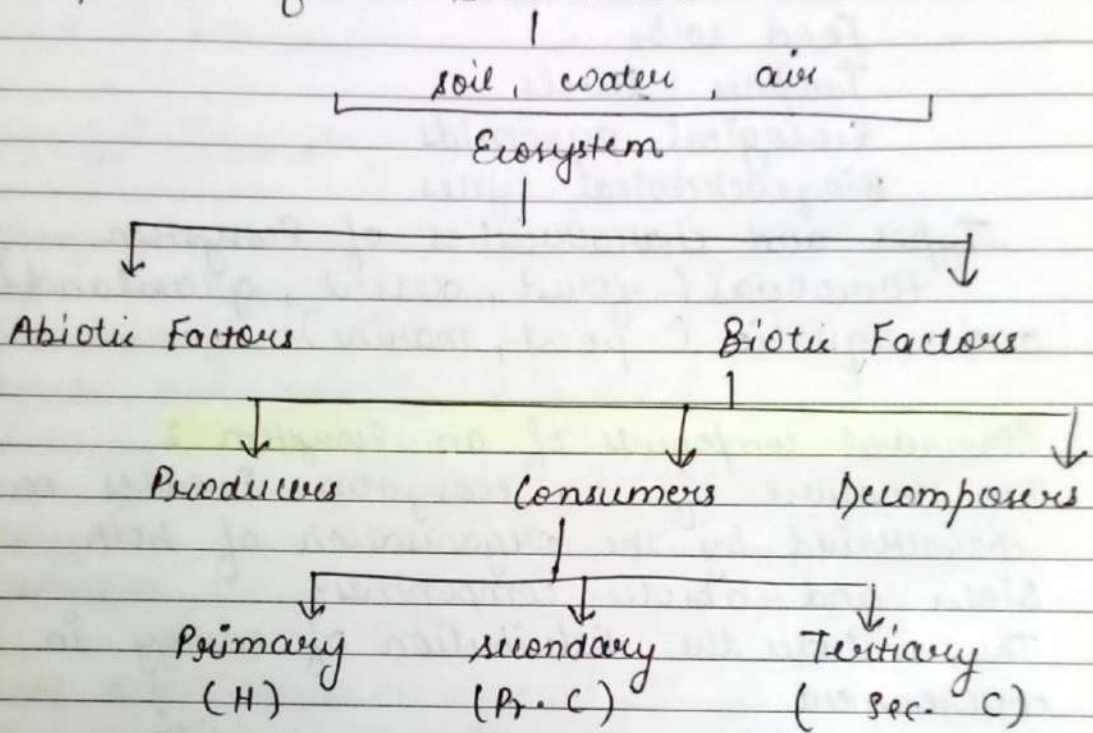 soil, water, air
Ecosystem
Abiotic Factors Biotic Factors
Producers Consumers Decomposers
Primary secondary Tertiary
(H) (Pr. C) (Sec. C)